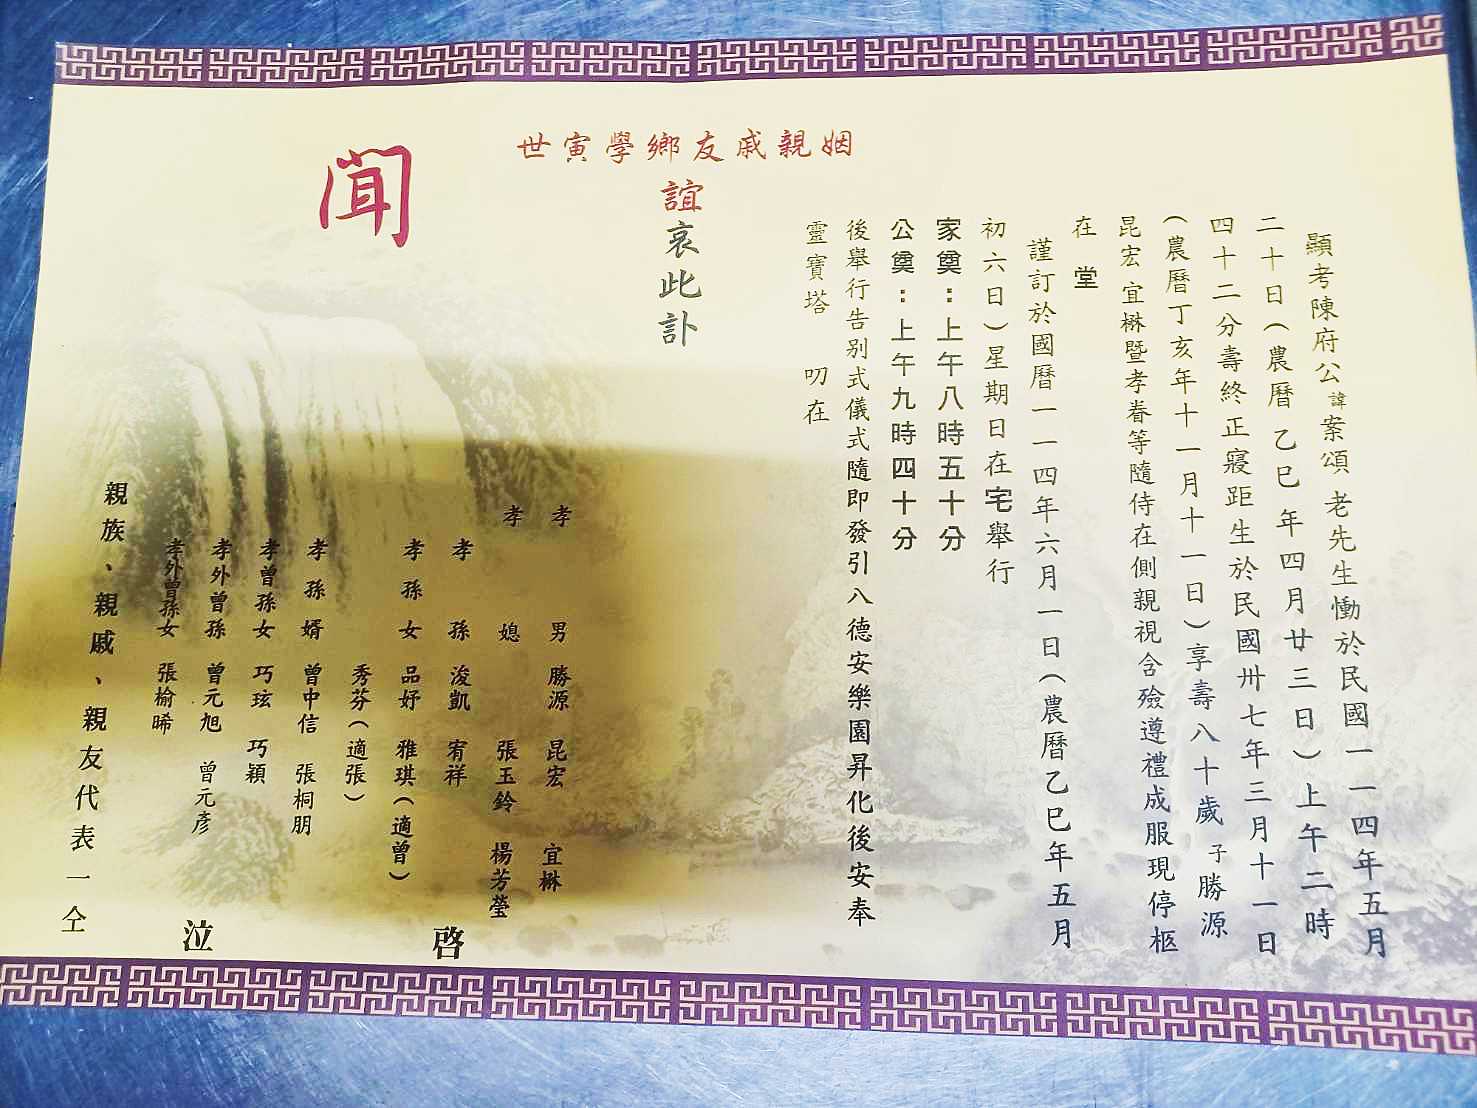 顯考陳府公諱案頌 老先生慟於民國一一四年五月
二十日(農曆乙巳年四月廿三日)上午二時
四十二分壽終正寢距生於民國卅七年三月十一日
(農曆丁亥年十一月十一日)享壽八十歲 子勝源
昆宏 宜楙暨孝眷等隨侍在側親視含殮遵禮成服現停柩
在 堂
謹訂於國曆一一四年六月一日(農曆乙巳年五月
初六日)星期日在宅舉行
家奠:上午八時五十分
公奠:上午九時四十分
後舉行告別式儀式隨即發引八德安樂園昇化後安奉
靈寶塔 叨在
姻親戚友鄉學寅世
誼哀此訃
聞
孝 男 勝源 昆宏 宜楙
孝 媳 張玉鈴 楊芳瑩
孝 孫 浚凱 宥祥
孝 孫 女 品妤 雅琪(適曾)
秀芬(適張)
孝 孫 婿 曾中信 張桐朋
孝曾孫女 巧玹 巧穎
孝外曾孫 曾元旭 曾元彥
孝外曾孫女 張榆晞
親族、親戚、親友代表一仝
泣 啓